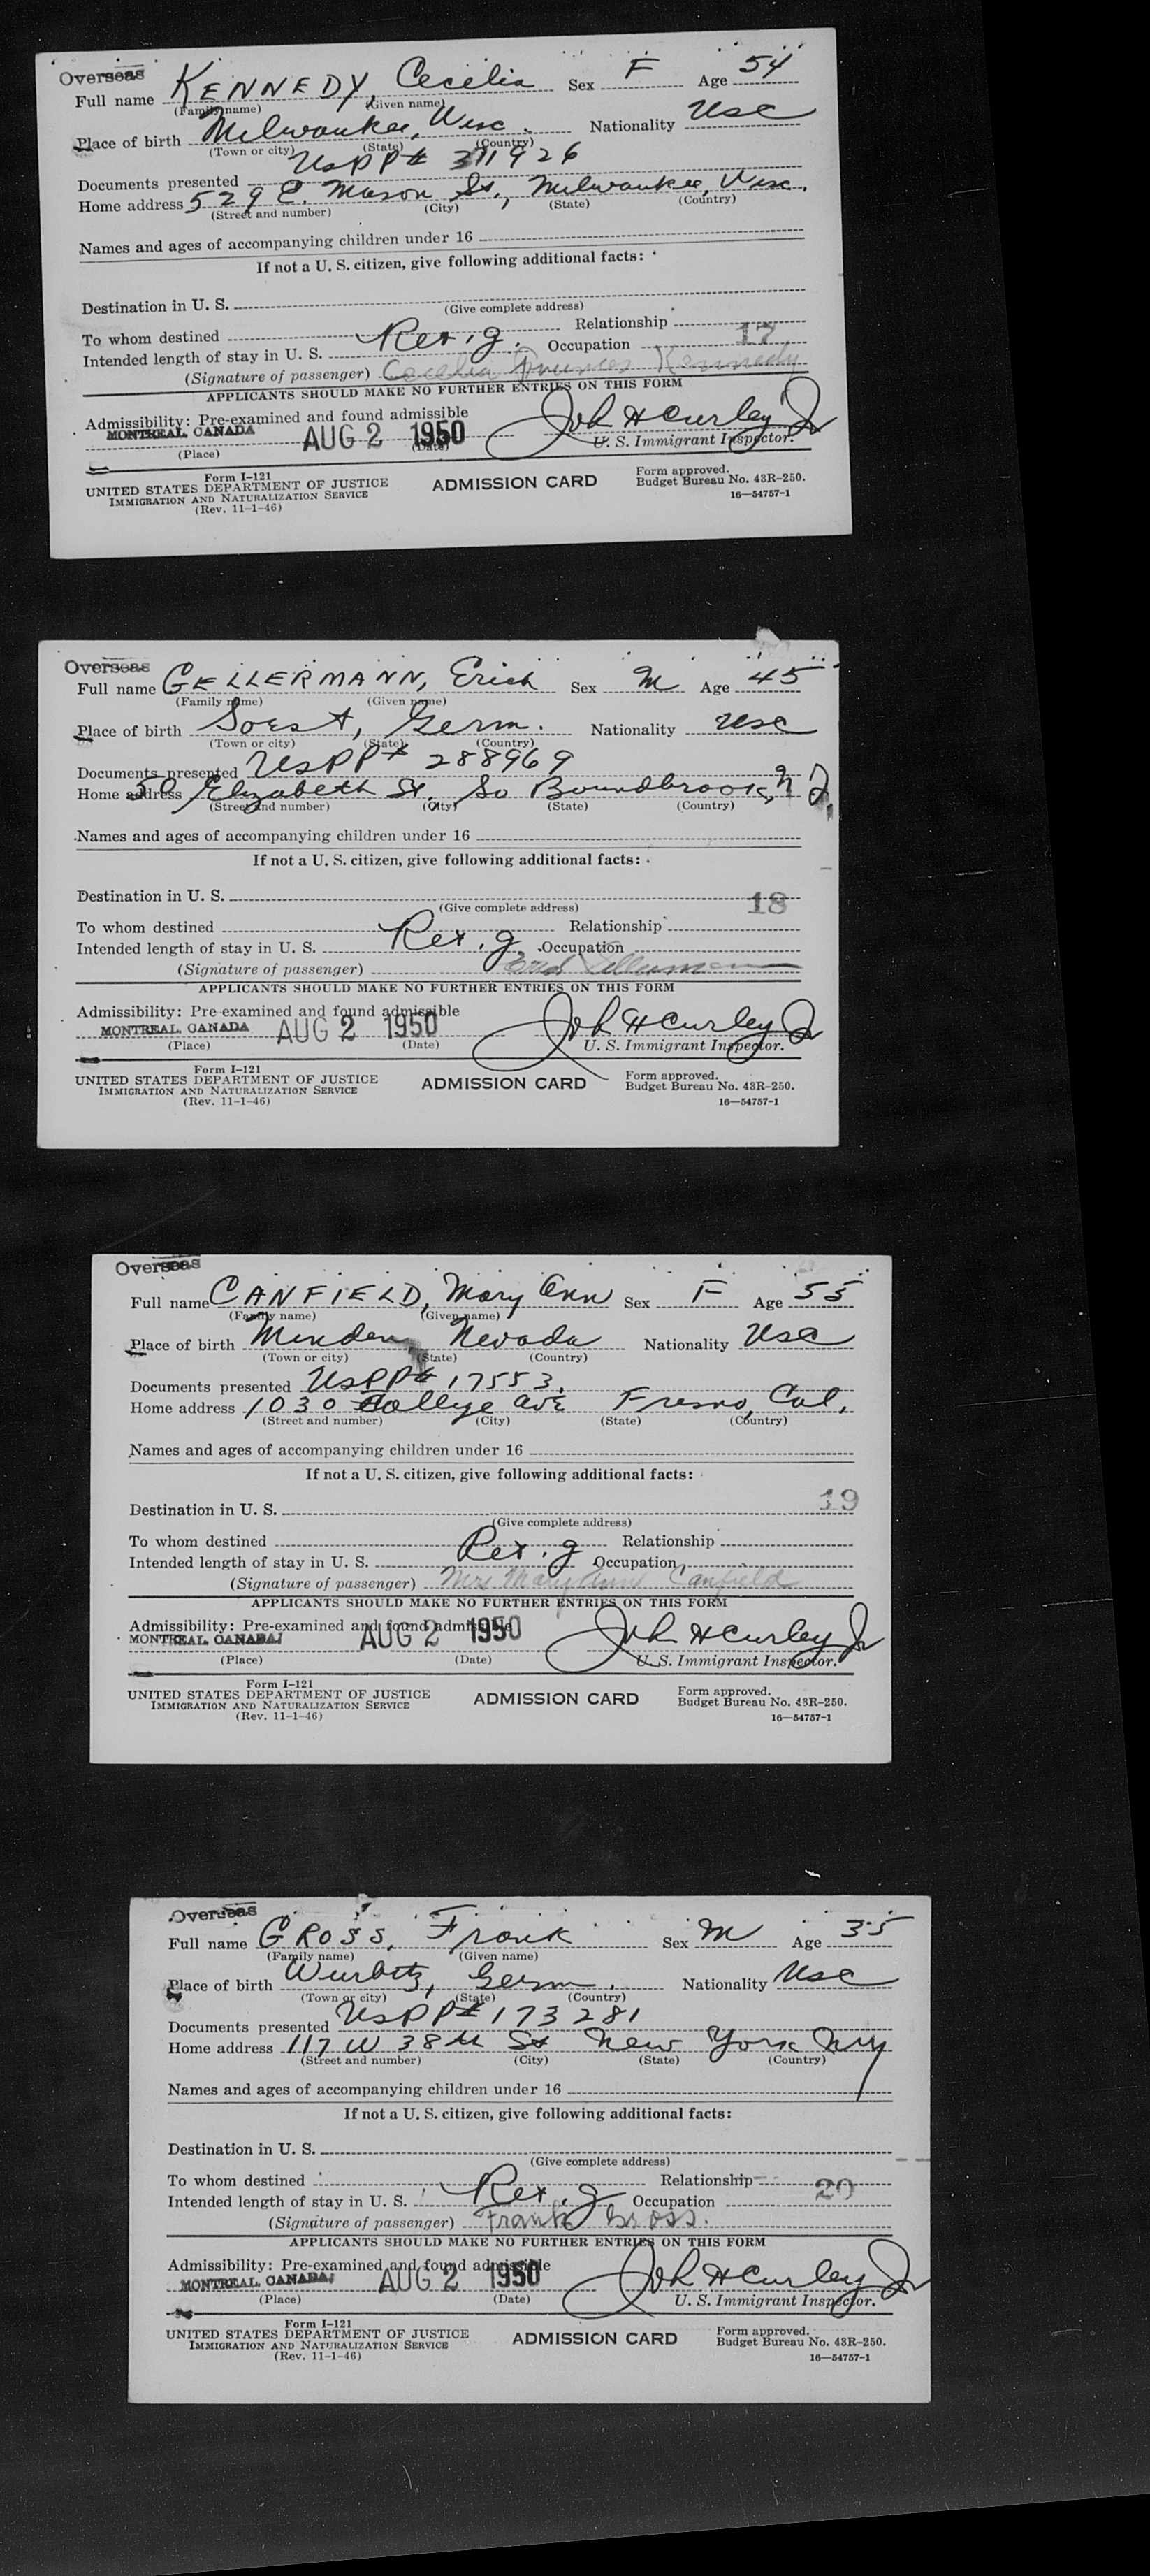 Overseas
Full name KENNEDY, Cecelia Sex F Age 54
(Family name) (Given name)
Place of birth Milwaukee, Wisc. Nationality USC
(Town or city) (State) (Country)
Documents presented USPP# 311926
Home address 529 E. Mason St., Milwaukee, Wisc.
(Street and number) (City) (State) (Country)
Names and ages of accompanying children under 16
If not a U. S. citizen, give following additional facts:
Destination in U. S.
(Give complete address)
To whom destined Relationship
17
Intended length of stay in U. S. Rex. g. Occupation
(Signature of passenger) Cecelia Frances Kennedy
APPLICANTS SHOULD MAKE NO FURTHER ENTRIES ON THIS FORM
Admissibility: Pre-examined and found admissible
MONTREAL, CANADA AUG 2 1950 John H Curley Jr
(Place) (Date) U. S. Immigrant Inspector.
Form I-121
UNITED STATES DEPARTMENT OF JUSTICE
IMMIGRATION AND NATURALIZATION SERVICE
(Rev. 11-1-46)
ADMISSION CARD
Form approved.
Budget Bureau No. 43R-250.
16—54757-1
Overseas
Full name GELLERMANN, Erich Sex M Age 45
(Family name) (Given name)
Place of birth Soest, Germ. Nationality USC
(Town or city) (State) (Country)
Documents presented USPP# 288969
Home address 50 Elizabeth St. So Boundbrook, N J.
(Street and number) (City) (State) (Country)
Names and ages of accompanying children under 16
If not a U. S. citizen, give following additional facts:
Destination in U. S.
18
(Give complete address)
To whom destined Relationship
Intended length of stay in U. S. Rex. g. Occupation
(Signature of passenger) Erich Gellermann
APPLICANTS SHOULD MAKE NO FURTHER ENTRIES ON THIS FORM
Admissibility: Pre-examined and found admissible
MONTREAL, CANADA AUG 2 1950 John H Curley Jr
(Place) (Date) U. S. Immigrant Inspector.
Form I-121
UNITED STATES DEPARTMENT OF JUSTICE
IMMIGRATION AND NATURALIZATION SERVICE
(Rev. 11-1-46)
ADMISSION CARD
Form approved.
Budget Bureau No. 43R-250.
16—54757-1
Overseas
Full name CANFIELD, Mary Ann Sex F Age 55
(Family name) (Given name)
Place of birth Minden, Nevada Nationality USC
(Town or city) (State) (Country)
Documents presented USPP# 17553.
Home address 1030 College Ave Fresno, Cal.
(Street and number) (City) (State) (Country)
Names and ages of accompanying children under 16
If not a U. S. citizen, give following additional facts:
Destination in U. S.
19
(Give complete address)
To whom destined Relationship
Intended length of stay in U. S. Rex. g Occupation
(Signature of passenger) Mrs Mary Ann Canfield
APPLICANTS SHOULD MAKE NO FURTHER ENTRIES ON THIS FORM
Admissibility: Pre-examined and found admissible
MONTREAL, CANADA AUG 2 1950 John H Curley Jr
(Place) (Date) U. S. Immigrant Inspector.
Form I-121
UNITED STATES DEPARTMENT OF JUSTICE
IMMIGRATION AND NATURALIZATION SERVICE
(Rev. 11-1-46)
ADMISSION CARD
Form approved.
Budget Bureau No. 43R-250.
16—54757-1
Overseas
Full name GROSS, Frank Sex M Age 35
(Family name) (Given name)
Place of birth Wurbitz, Germ. Nationality USC
(Town or city) (State) (Country)
Documents presented USPP# 173281
Home address 117 W 38th St New York NY
(Street and number) (City) (State) (Country)
Names and ages of accompanying children under 16
If not a U. S. citizen, give following additional facts:
Destination in U. S.
(Give complete address)
To whom destined Relationship
20
Intended length of stay in U. S. Rex. g Occupation
(Signature of passenger) Frank Gross.
APPLICANTS SHOULD MAKE NO FURTHER ENTRIES ON THIS FORM
Admissibility: Pre-examined and found admissible
MONTREAL, CANADA AUG 2 1950 John H Curley Jr
(Place) (Date) U. S. Immigrant Inspector.
Form I-121
UNITED STATES DEPARTMENT OF JUSTICE
IMMIGRATION AND NATURALIZATION SERVICE
(Rev. 11-1-46)
ADMISSION CARD
Form approved.
Budget Bureau No. 43R-250.
16—54757-1